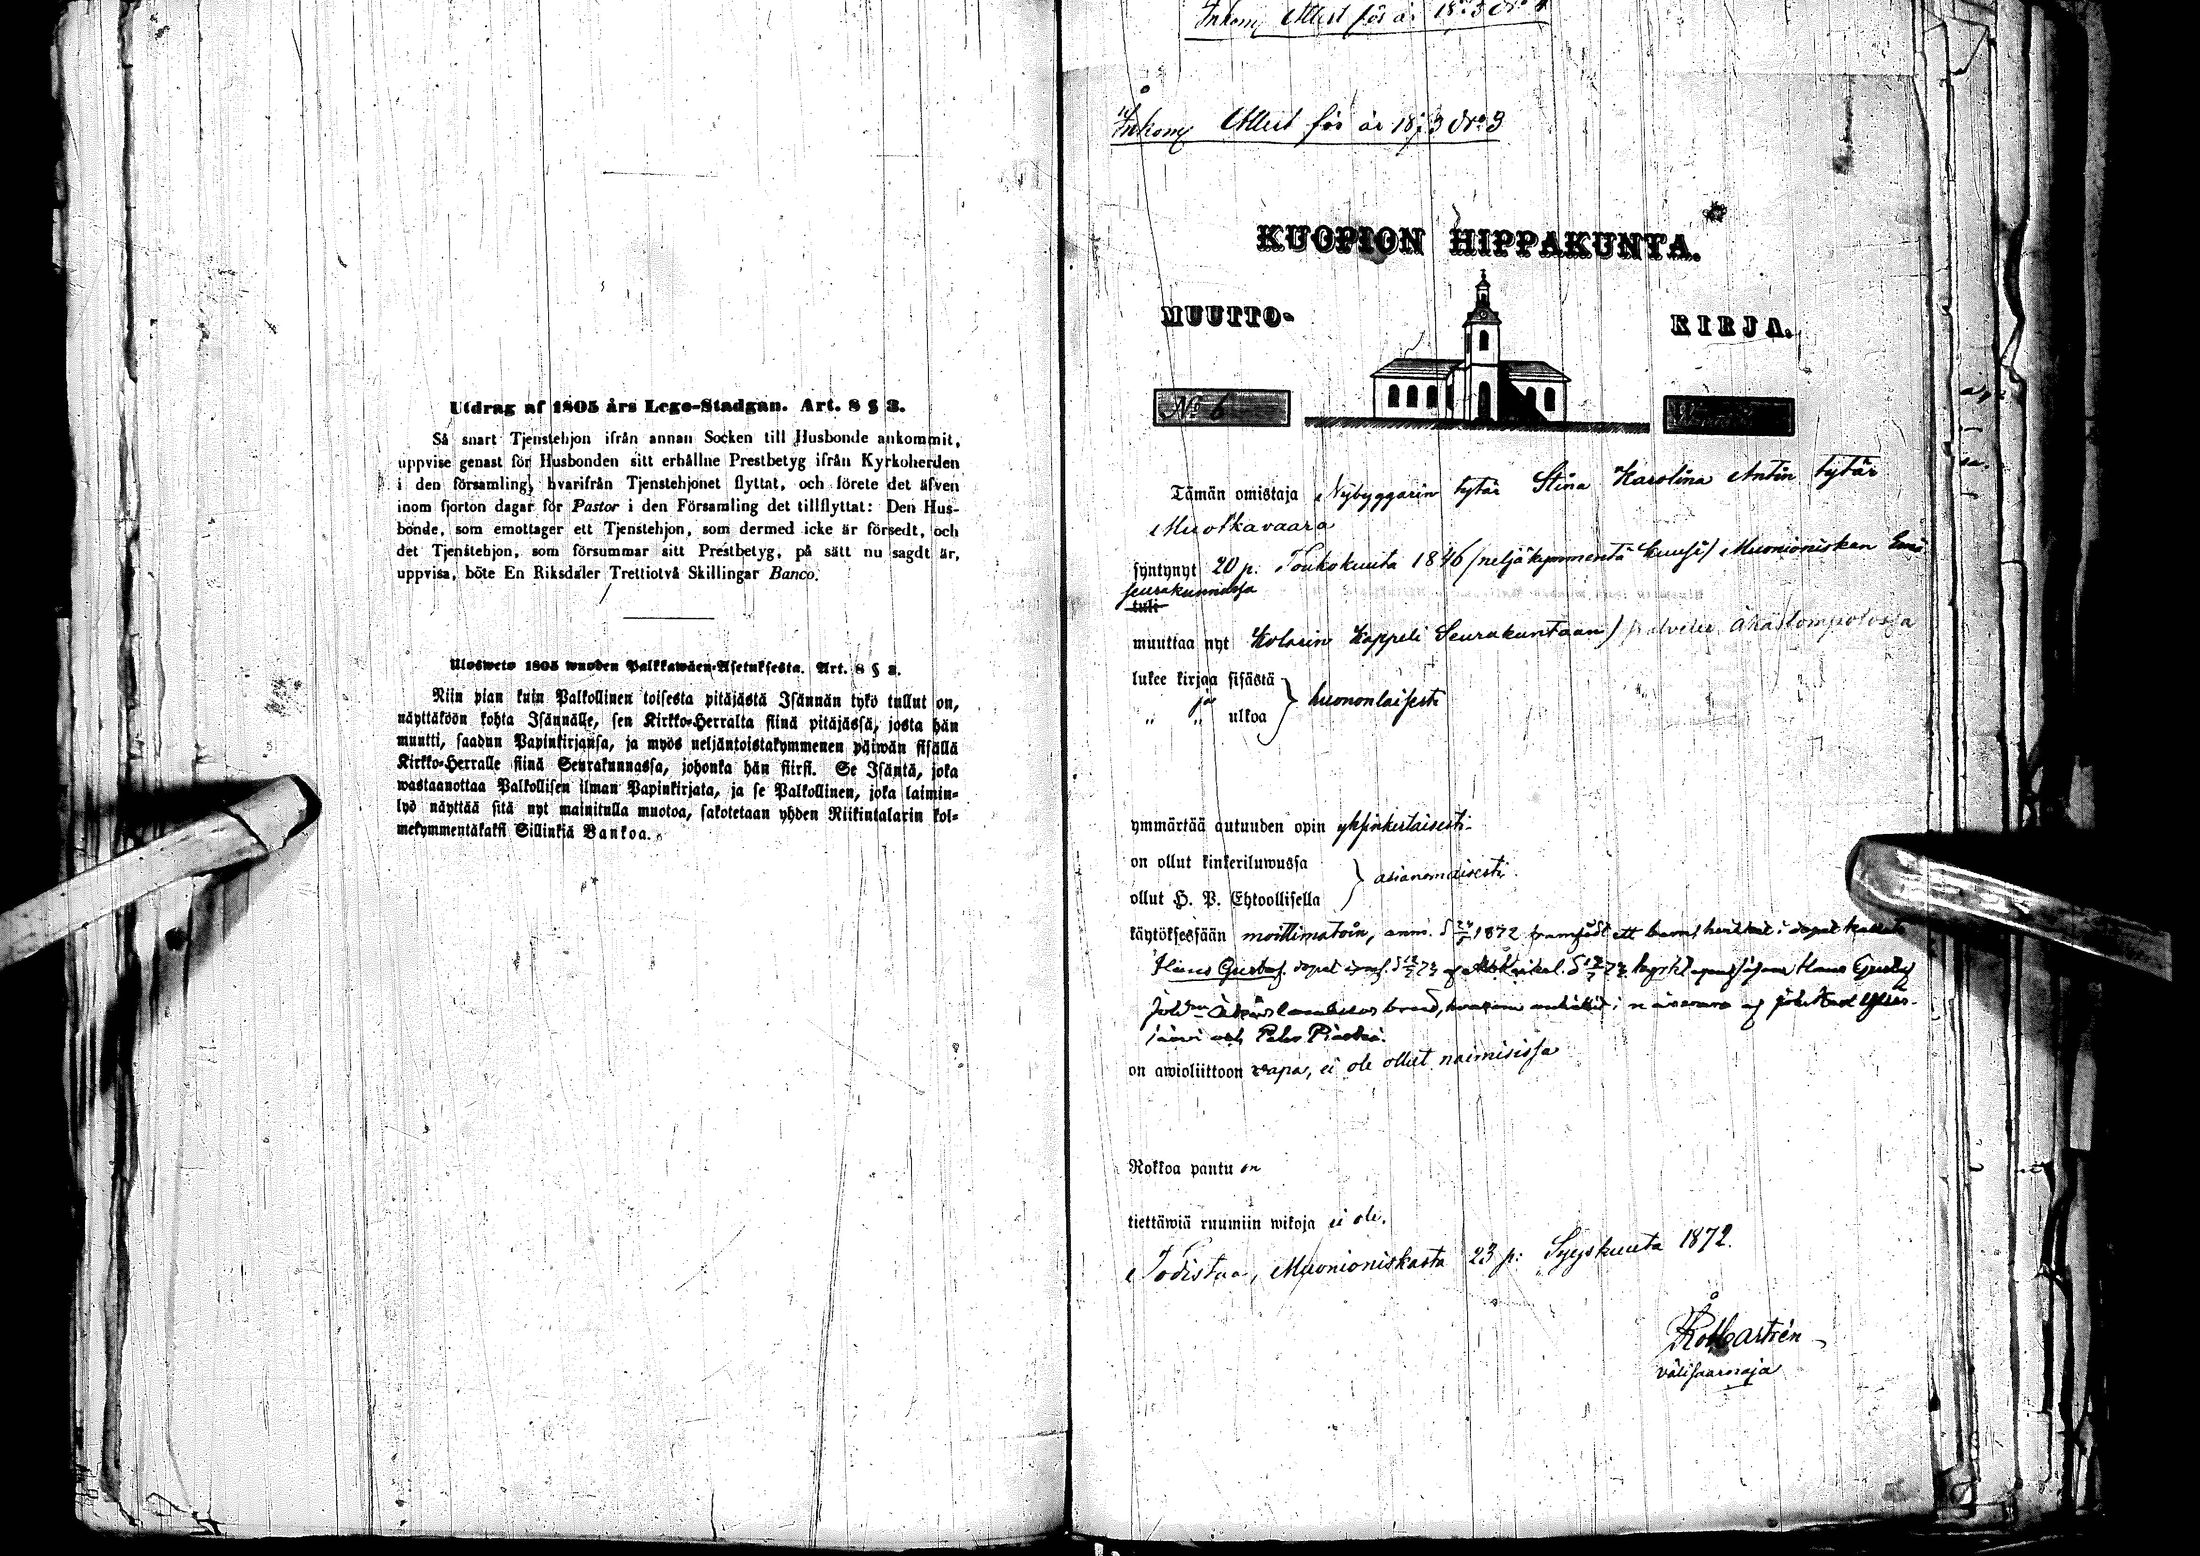 Utdrag af 1805 års Lego-Stadgan. Art. 8 § 3.
Så snart Tjenstehjon ifrån annan Socken till Husbonde ankommit,
uppvise genast för Husbonden sitt erhållne Prestbetyg ifrån Kyrkoherden
i den församling, hvarifrån Tjenstehjonet flyttat, och förete det äfven
inom fjorton dagar för Pastor i den Församling det tillflyttat: Den Hus-
bonde, som emottager ett Tjenstehjon, som dermed icke är försedt, och
det Tjenstehjon, som försummar sitt Prestbetyg, på sätt nu sagdt är,
uppvisa, böte En Riksdaler Trettiotvå Skillingar Banco.
Ulosweto 1805 wuoden Palkkawäen-Asetuksesta. Art. 8 § 3.
Niin pian kuin Palkollinen toisesta pitäjästä Isännän tykö tullut on,
näyttäköön kohta Isännälle, sen Kirkko-Herralta siinä pitäjässä, josta hän
muutti, saadun Papinkirjansa, ja myös neljäntoistakymmenen päiwän sisällä
Kirkko-Herralle siinä Seurakunnassa, johonka hän siirsi. Se Isäntä, joka
wastaanottaa Palkollisen ilman Papinkirjata, ja se Palkollinen, joka laimin-
lyö näyttää sitä nyt mainitulla muotoa, sakotetaan yhden Riikintalarin kol-
mekymmentäkaksi Sillinkiä Bankoa.
Inkom Attest för år 1873 N:o
Inkom Attest för år 1873 N:o 3
KUOPION HIPPAKUNTA.
MUUTTO- KIRJA.
No 6
Tämän omistaja Nybyggarin tytär Stina Karolina Antin tytär
Muotkavaara
syntynyt 20 p. Toukokuuta 1846 (neljäkymmentä kuusi) Muonioniskan Emä
seurakunnassa
tuli
muuttaa nyt Kolarin Kappeli Seurakuntaan) Äkäslompolossa
lukee kirjaa sisästä
ja
„ „ ulkoa } huononlaisesti
ymmärtää autuuden opin yksinkertaisesti
on ollut kinkeriluwussa
ollut H. P. Ehtoollisella } asianomaisesti
käytöksessään moittimatoin, anm. 1872 framfödt ett barn, hvilket i dopet kallats
Hans Gustaf. dopet Hans Gustaf
on awioliittoon vapa, ei ole ollut naimisissa
Rokkoa pantu on
tiettäwiä ruumiin wikoja ei ole.
Todistaa, Muonioniskasta 23 p: Syyskuuta 1872.
välisaarnaaja